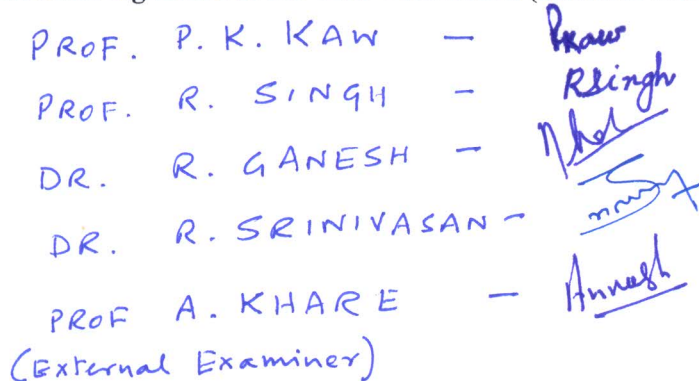 PROF. P. K. KAW - PKaw
PROF. R. SINGH - RSingh
DR. R. GANESH -
DR. R. SRINIVASAN -
PROF A. KHARE -
(External Examiner)